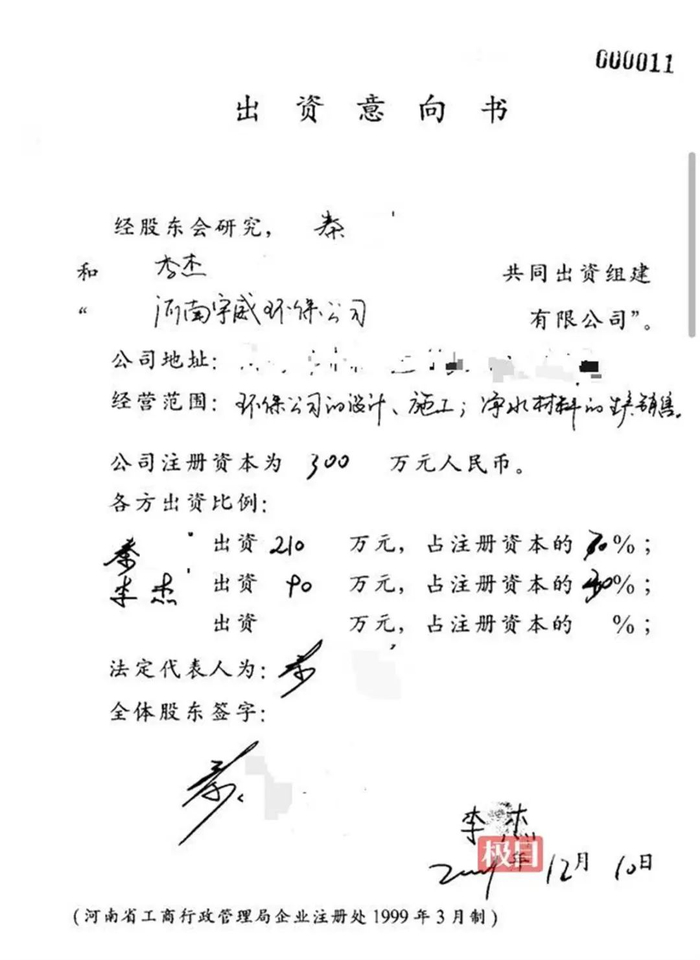 000011
出资意向书
经股东会研究, 秦
和 李杰 共同出资组建
“ 河南宇威环保公司 有限公司”。
公司地址:
经营范围: 环保公司的设计、施工; 净水材料的生产销售。
公司注册资本为 300 万元人民币。
各方出资比例:
秦 出资 210 万元, 占注册资本的 70%;
李杰 出资 90 万元, 占注册资本的 30%;
出资 万元, 占注册资本的 %;
法定代表人为: 秦
全体股东签字:
秦
李杰
极目
年 12月 10日
(河南省工商行政管理局企业注册处1999年3月制)